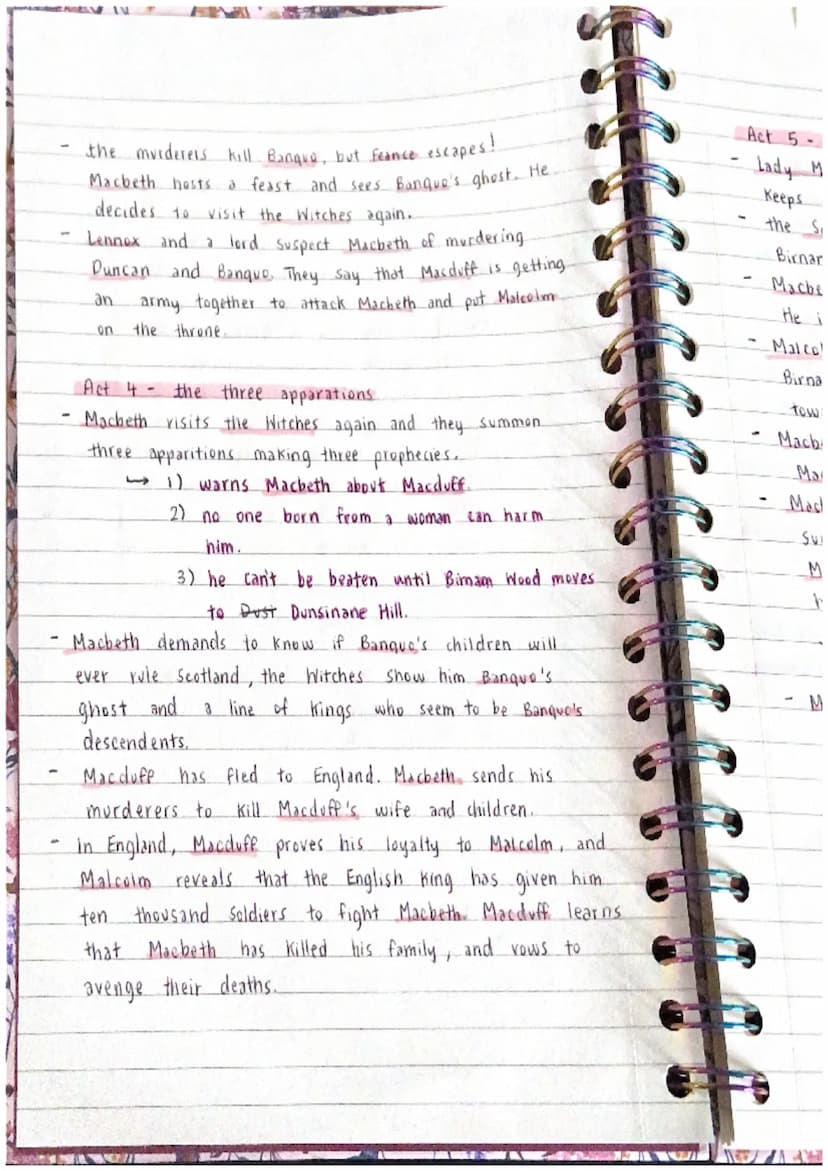 - the murderers kill Banquo, but Feance escapes!
Macbeth hosts a feast and sees Banquo's ghost. He
decides to visit the Witches again.
- Lennox and a lord suspect Macbeth of murdering
Duncan and Banquo. They say that Macduff is getting
an army together to attack Macbeth and put Malcolm
on the throne.
Act 4 - the three apparations
- Macbeth visits the Witches again and they summon
three apparitions making three prophecies.
↳ 1) warns Macbeth about Macduff.
2) no one born from a woman can harm
him.
3) he can't be beaten until Birnam Wood moves
to Dust Dunsinane Hill.
- Macbeth demands to know if Banquo's children will
ever rule Scotland, the Witches show him Banquo's
ghost and a line of kings who seem to be Banquo's
descendents.
- Macduff has fled to England. Macbeth sends his
murderers to kill Macduff's wife and children.
- in England, Macduff proves his loyalty to Malcolm, and
Malcolm reveals that the English King has given him
ten thousand soldiers to fight Macbeth. Macduff learns
that Macbeth has killed his family, and vows to
avenge their deaths.
Act 5 -
- Lady M
Keeps
- the S
Birnar
- Macbe
He i
- Malcol
Birna
tow
- Macb
Ma
- Macl
Su
M
- M